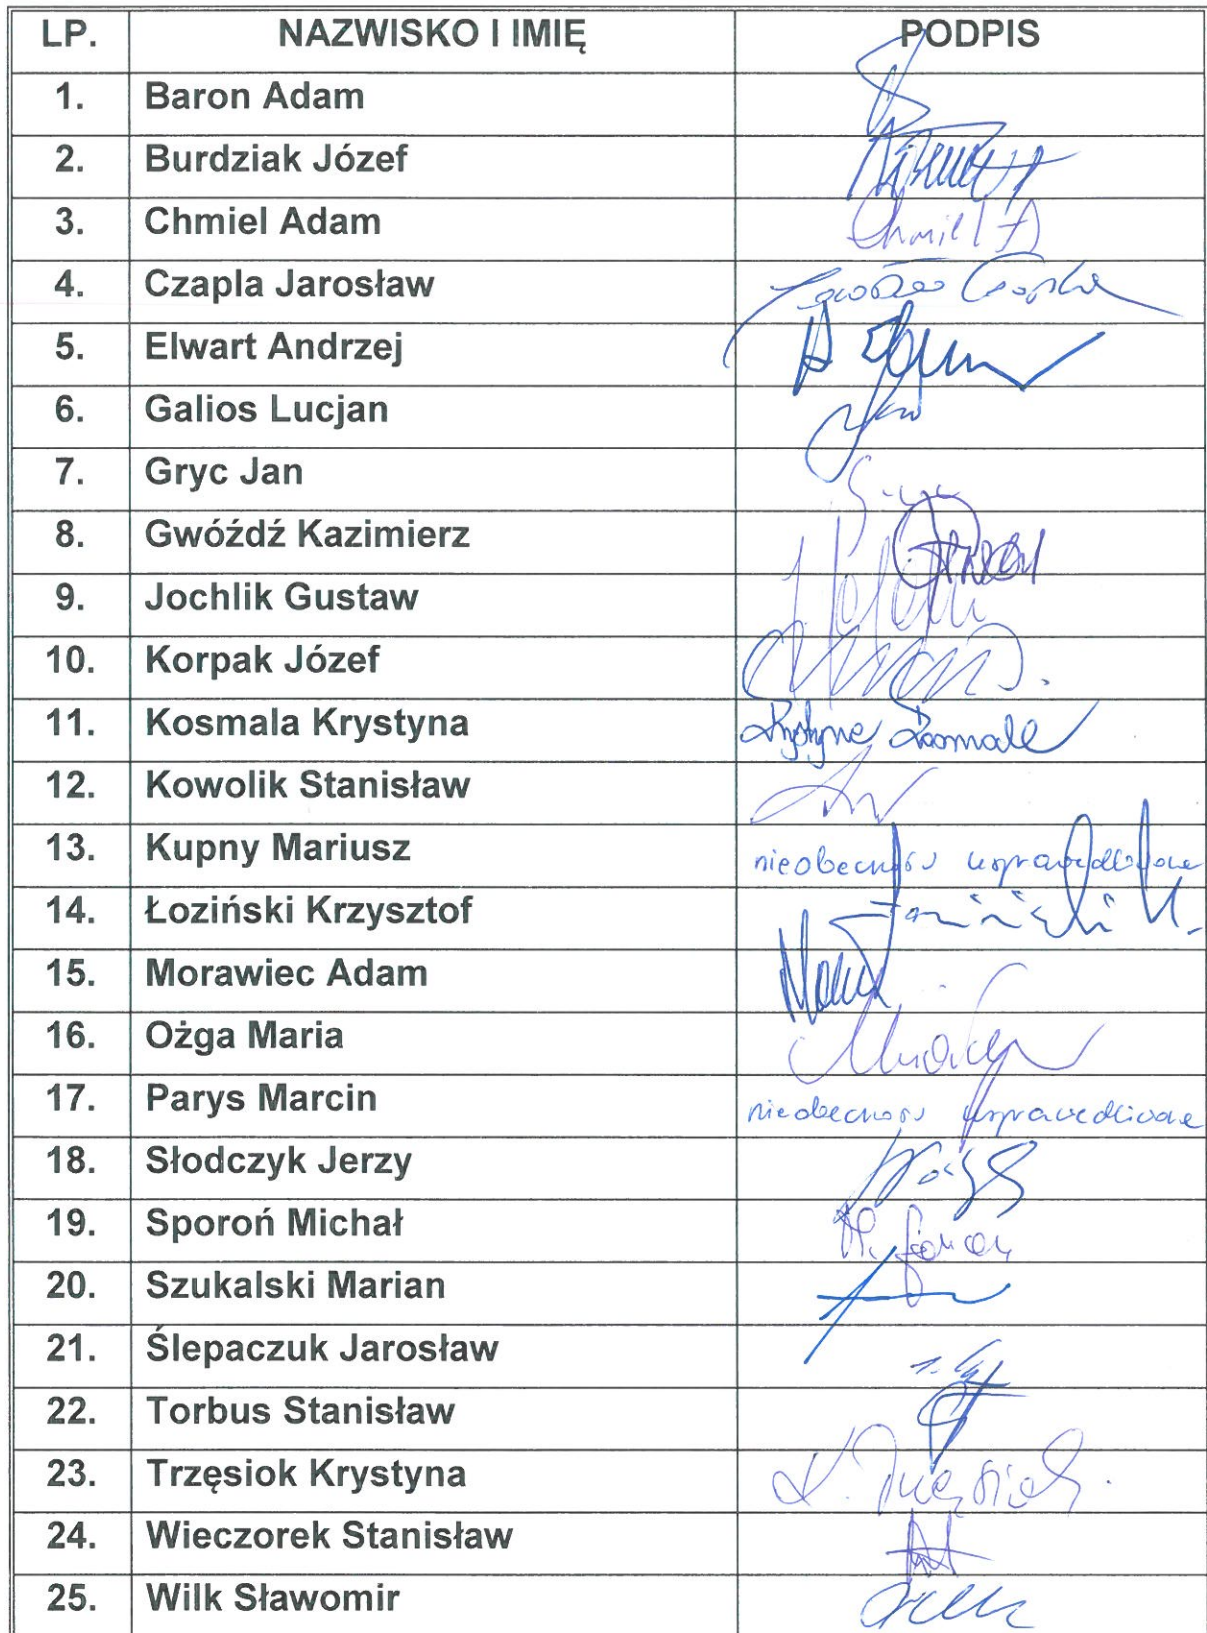 LP. NAZWISKO I IMIĘ PODPIS
1. Baron Adam
2. Burdziak Józef
3. Chmiel Adam Chmiel A
4. Czapla Jarosław Jarosław Czapla
5. Elwart Andrzej
6. Galios Lucjan
7. Gryc Jan
8. Gwóźdź Kazimierz
9. Jochlik Gustaw
10. Korpak Józef
11. Kosmala Krystyna Krystyna Kosmala
12. Kowolik Stanisław
13. Kupny Mariusz nieobecność usprawiedliwiona
14. Łoziński Krzysztof
15. Morawiec Adam
16. Ożga Maria
17. Parys Marcin nieobecność usprawiedliwiona
18. Słodczyk Jerzy
19. Sporoń Michał
20. Szukalski Marian
21. Ślepaczuk Jarosław
22. Torbus Stanisław
23. Trzęsiok Krystyna K. Trzęsiok
24. Wieczorek Stanisław
25. Wilk Sławomir